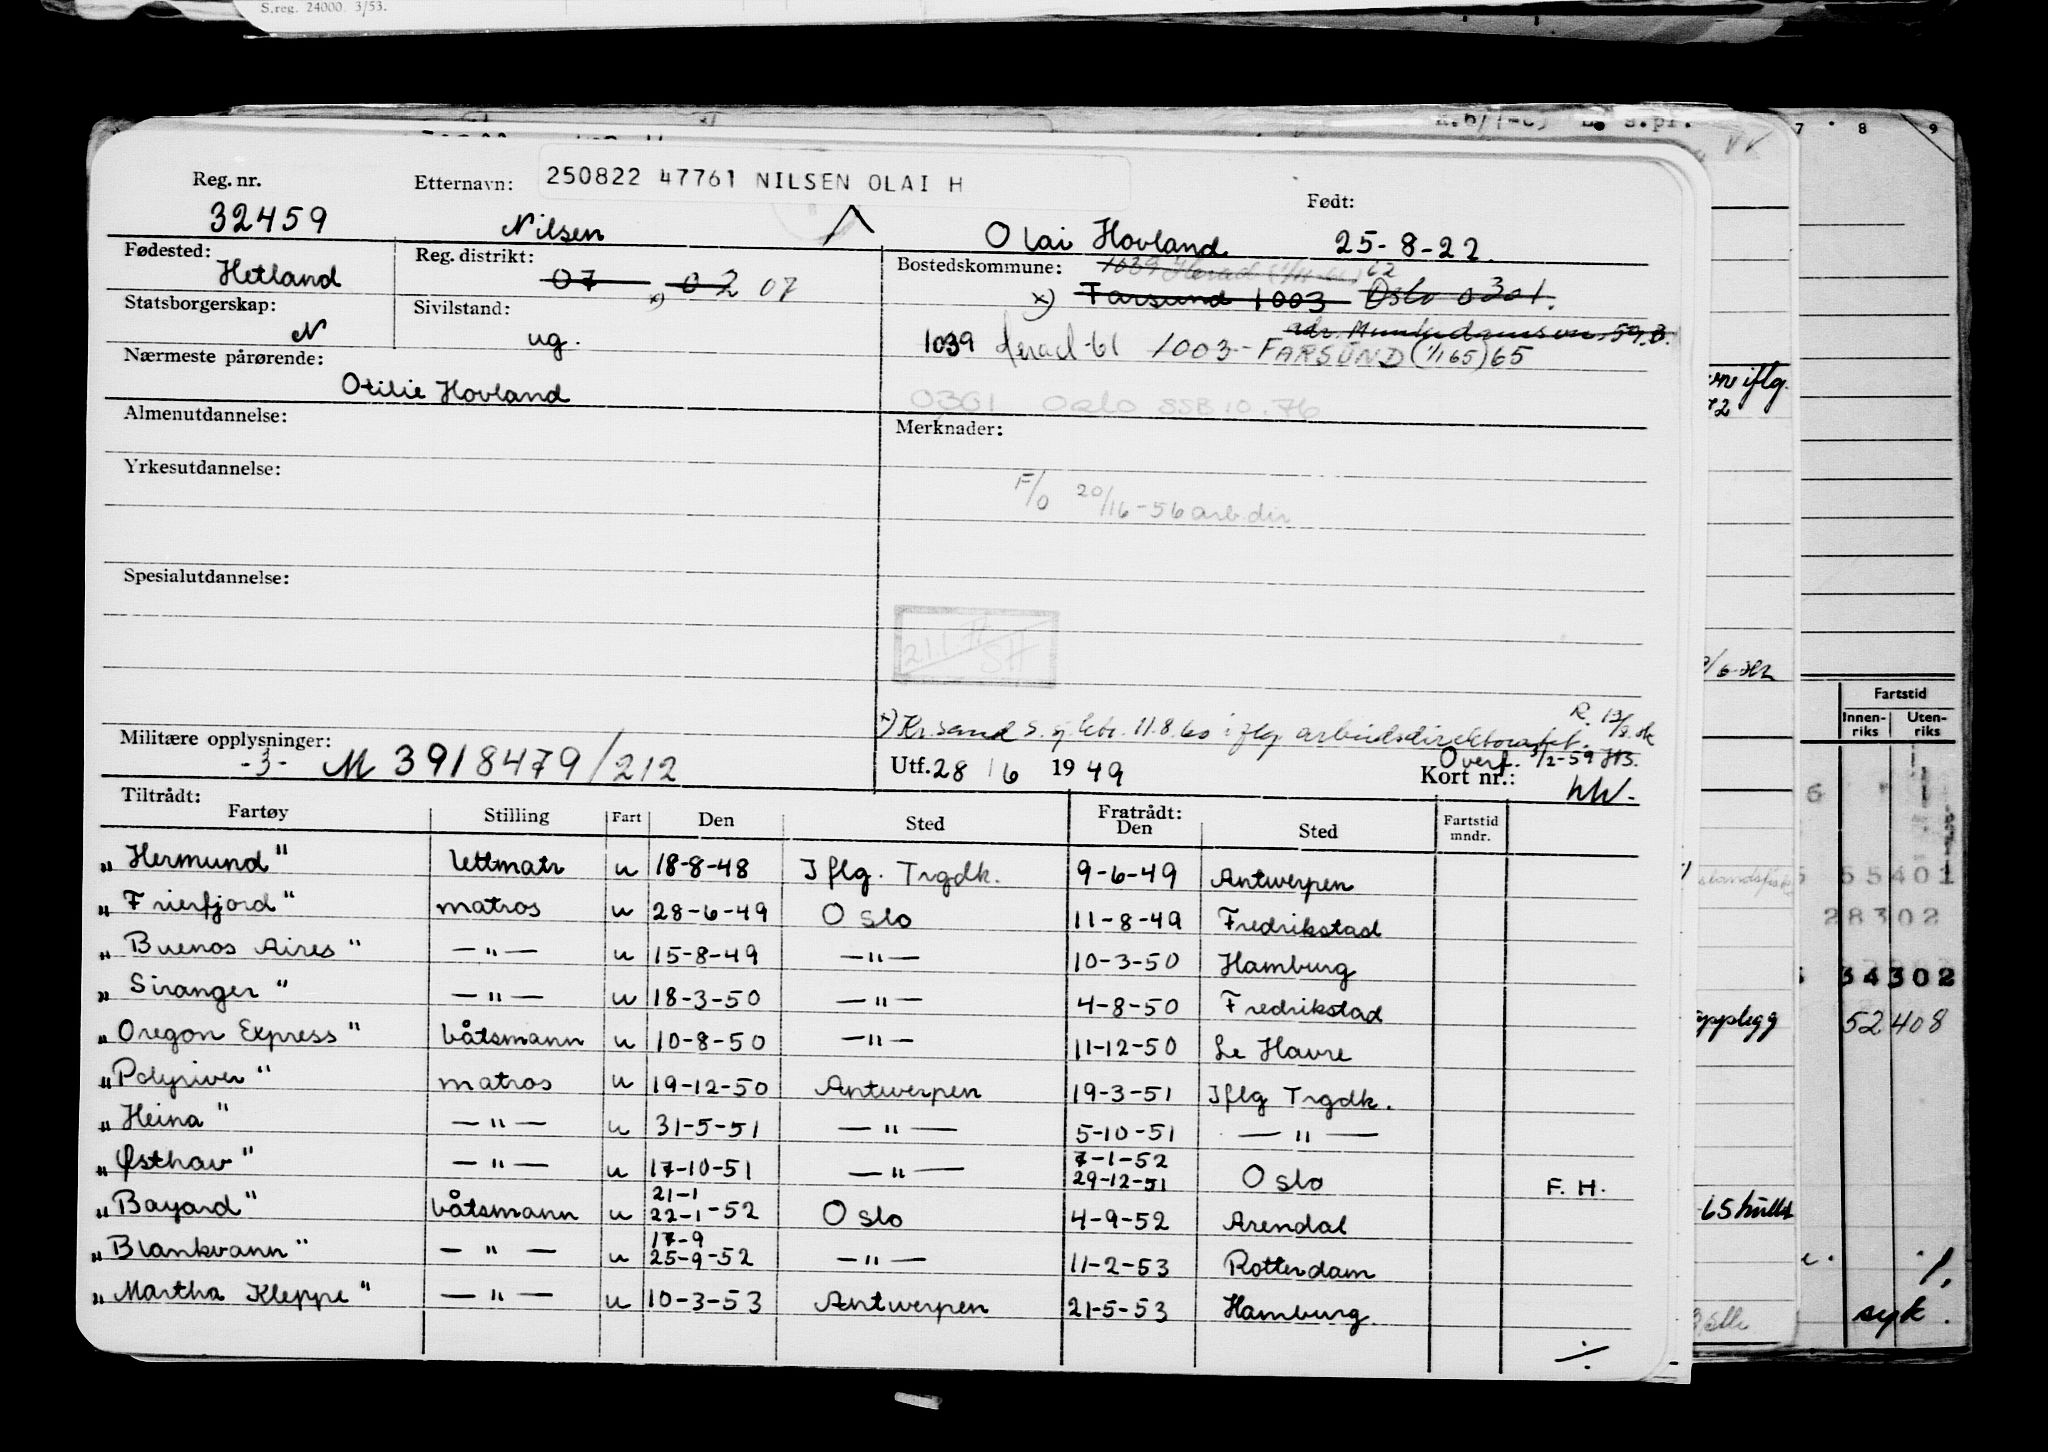 S.reg. 24000. 3/53.
7 8 9
Reg. nr. Etternavn: 250822 47761 NILSEN OLAI H Født:
32459 Nilsen Olai Hovland 25-8-22.
Fødested: Hetland Reg. distrikt: 07 x) 02 07 Bostedskommune: 1039 Herad 62
x) Farsund 1003 Oslo 0301.
Statsborgerskap: N Sivilstand: ug.
adr. Munkedamsvn. 59.B.
1039 Herad -61 1003 - FARSUND (1/1 65) 65
Nærmeste pårørende:
Otilie Hovland
0301 Oslo SSB 10.76
Almenutdannelse: Merknader:
Yrkesutdannelse:
F/O 20/16-56 arb.dir
Spesialutdannelse:
x) Kr.sand S. arbeidsdirektoratet.
Militære opplysninger: Utf. 28/6 1949 Overf. 1/2-59 Kort nr.:
-3- M 3918479/212
Tiltrådt: Fratrådt:
Fartøy Stilling Fart Den Sted Den Sted Fartstid mndr.
"Hermund" lettmatr u 18-8-48 Iflg. Trgdk. 9-6-49 Antwerpen
"Frierfjord" matros u 28-6-49 Oslo 11-8-49 Fredrikstad
"Buenos Aires" —"— u 15-8-49 —"— 10-3-50 Hamburg
"Siranger" —"— u 18-3-50 —"— 4-8-50 Fredrikstad
"Oregon Express" båtsmann u 10-8-50 —"— 11-12-50 Le Havre
"Polyriver" matros u 19-12-50 Antwerpen 19-3-51 Iflg Trgdk.
"Heina" —"— u 31-5-51 —"— 5-10-51 —"—
"Østhav" —"— u 17-10-51 —"— 7-1-52 29-12-51 Oslo F. H.
"Bayard" båtsmann u 21-1 22-1-52 Oslo 4-9-52 Arendal
"Blankvann" —"— u 17-9 25-9-52 —"— 11-2-53 Rotterdam
"Martha Kleppe" —"— u 10-3-53 Antwerpen 21-5-53 Hamburg.
Fartstid
Innenriks Utenriks
55401
28302
34302
52408
syk.